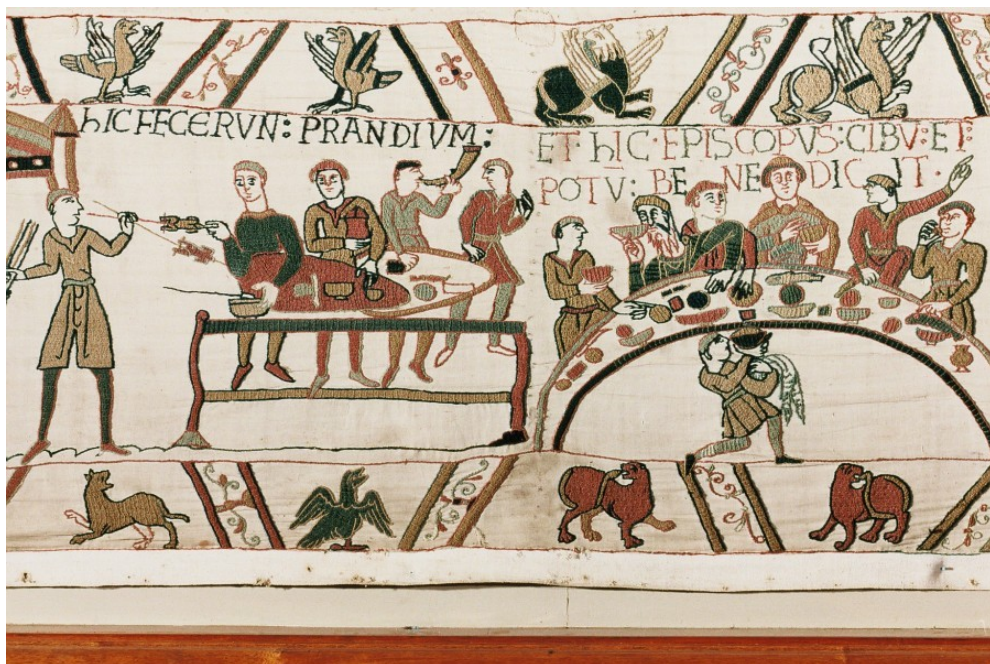 hIC FECERVN: PRANDIVM:
ET· hIC·EPISCOPVS:CIBV:ET:
POTV: BE NE DIC IT·